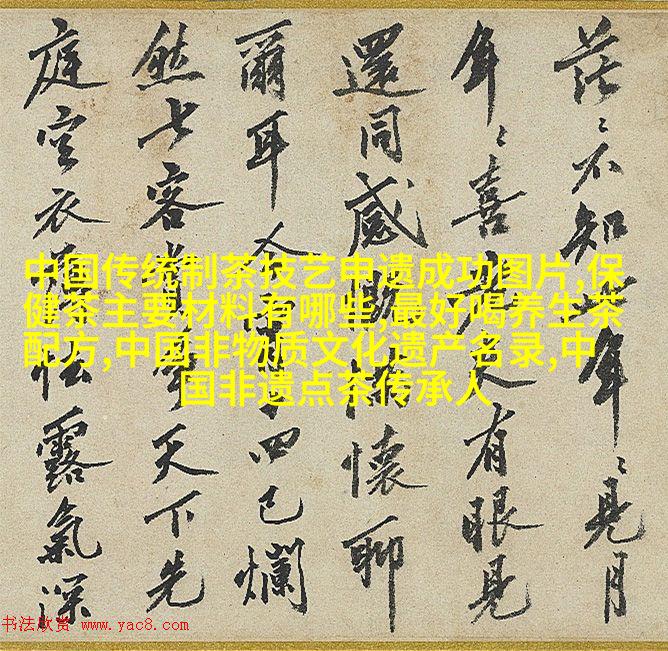 茫〻不知年〻見月
年〻喜人有眼見
還同感懷聊
爾耳四已爛
然七客天下先
庭空衣松露氣深
中国传统制茶技艺申遗成功图片,保
健茶主要材料有哪些,最好喝养生茶
配方,中国非物质文化遗产名录,中
国非遗点茶传承人
书法欣赏 www.yac8.com